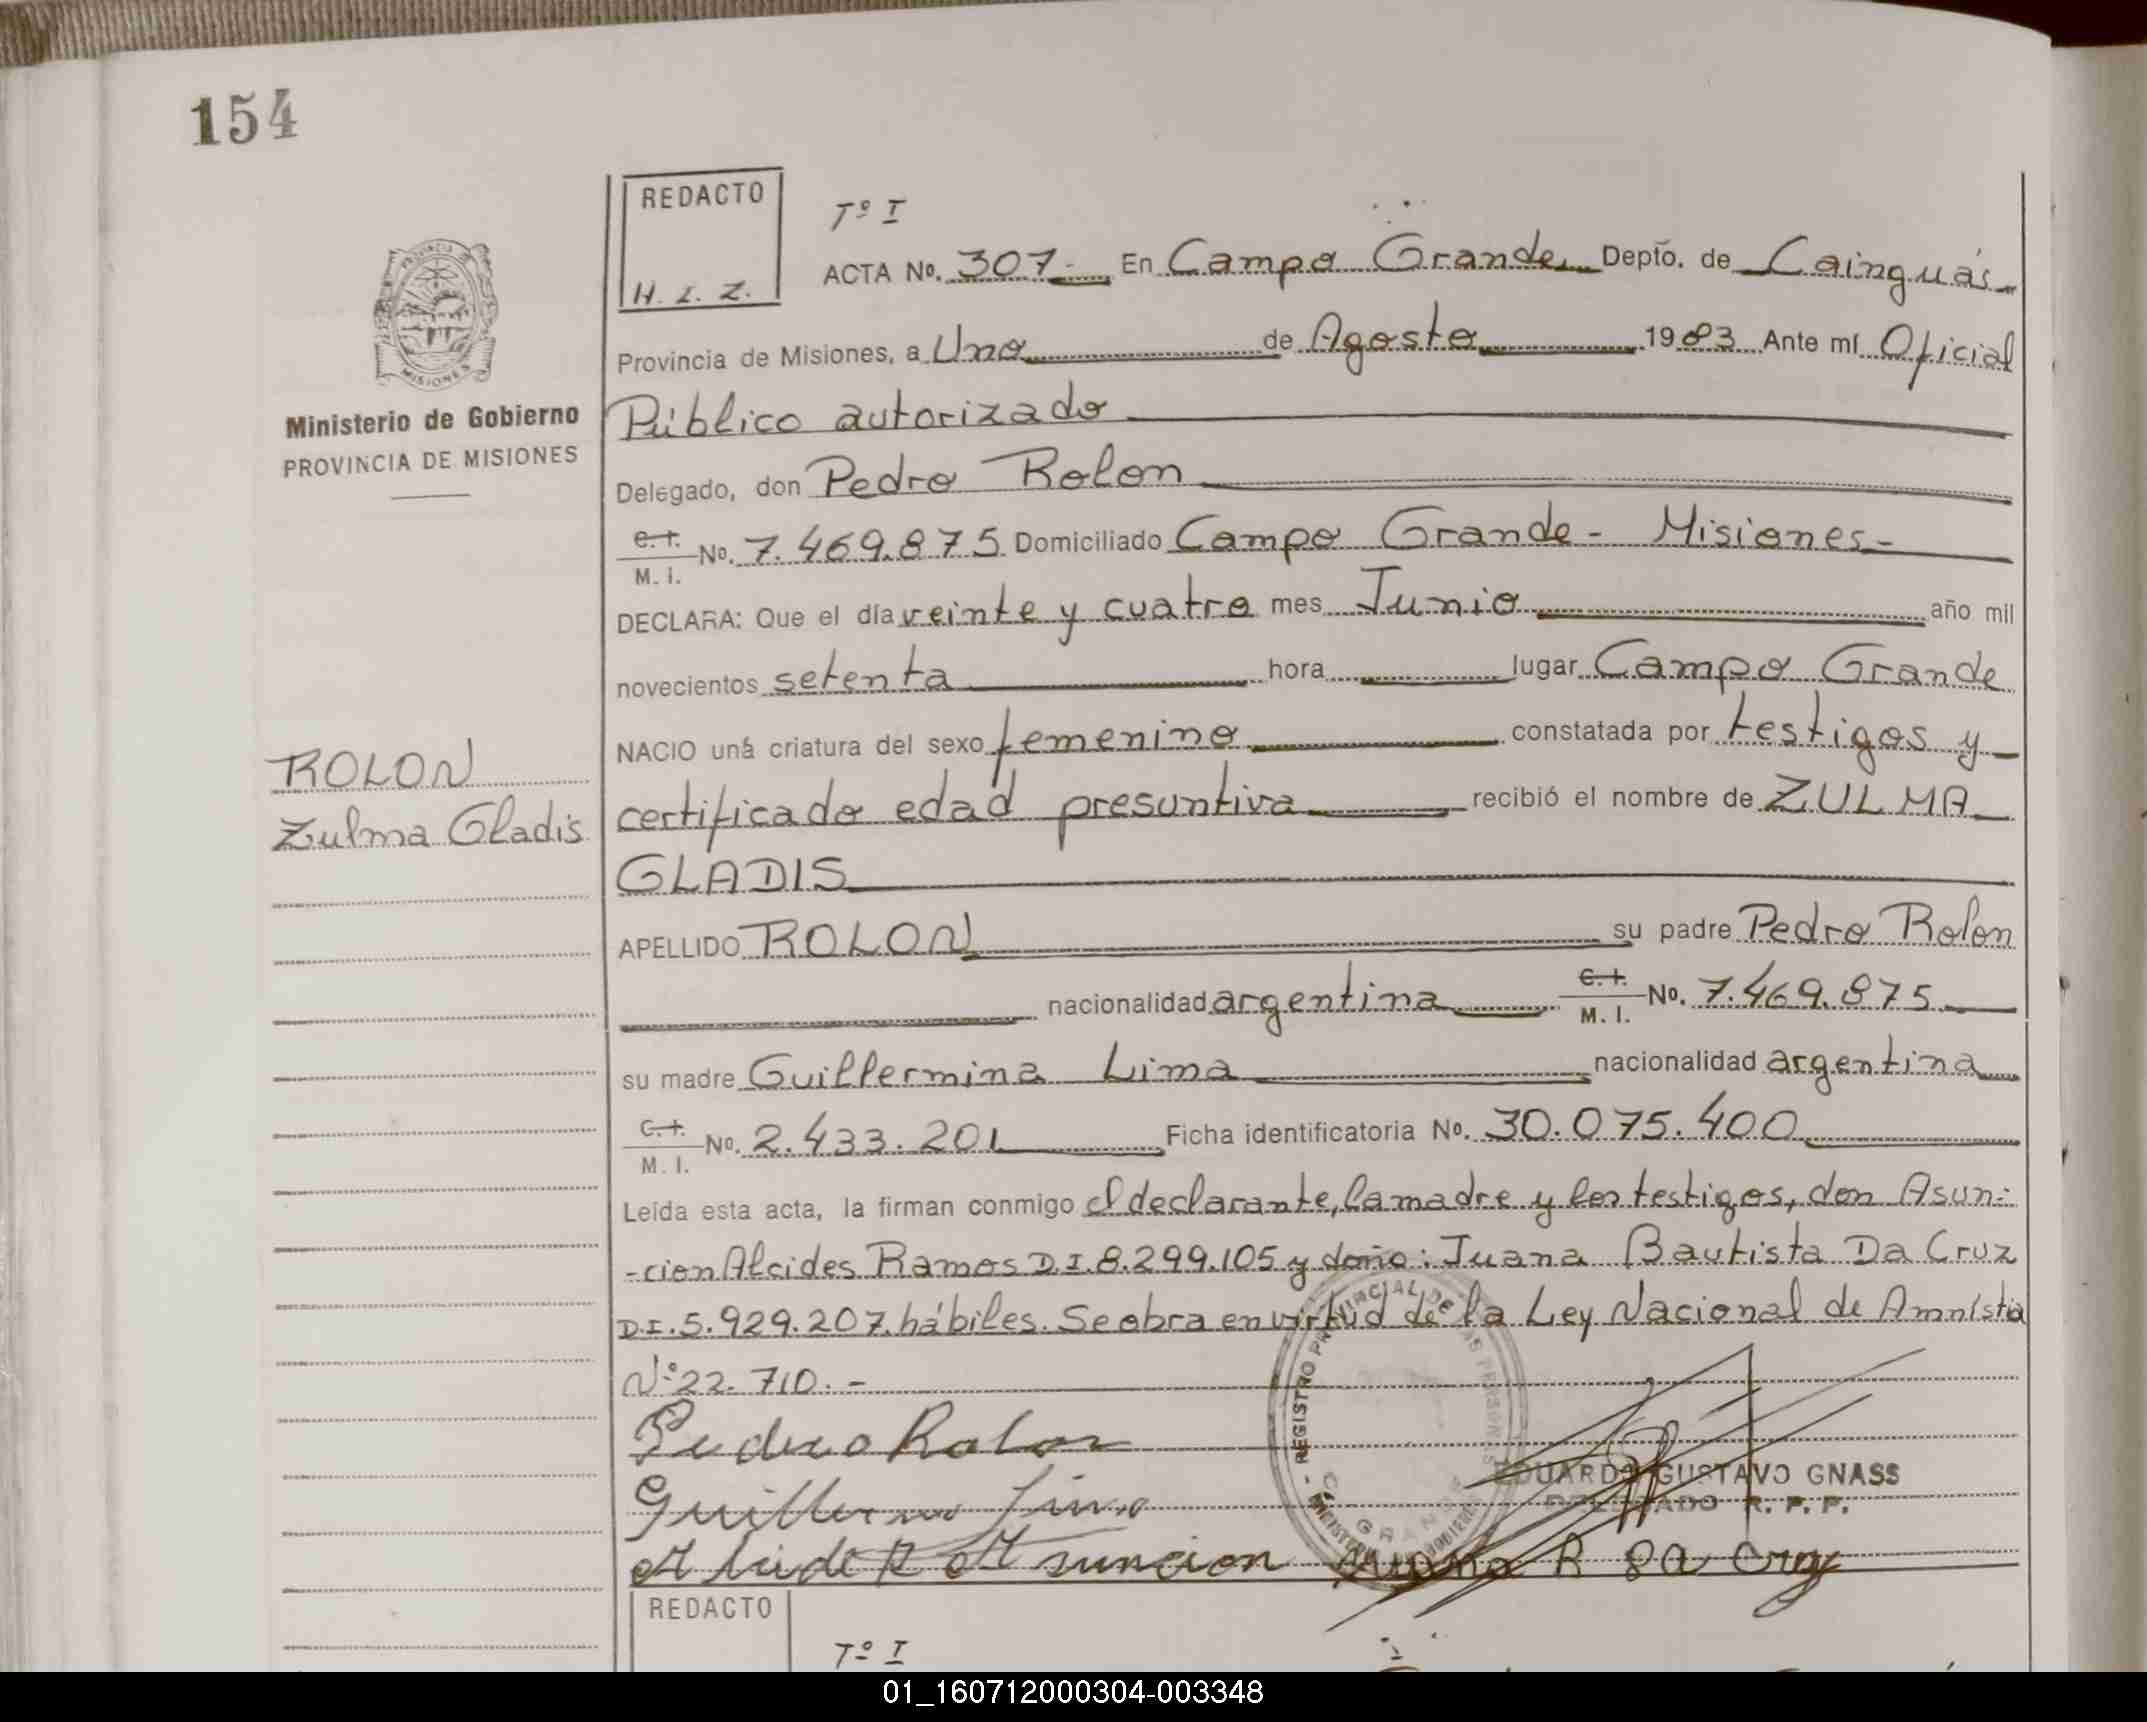 154
REDACTO
H. L. Z.
Tº I
ACTA Nº. 307- En Campo Grande Depto. de Cainguás
Provincia de Misiones, a Uno de Agosto 1983 Ante mí Oficial
Público autorizado
Delegado, don Pedro Rolon
C. I. M. I. Nº. 7.469.875 Domiciliado Campo Grande - Misiones-
DECLARA: Que el día veinte y cuatro mes Junio año mil
novecientos setenta hora lugar Campo Grande
NACIO una criatura del sexo femenino constatada por testigos y
certificado edad presuntiva recibió el nombre de ZULMA
GLADIS
APELLIDO ROLON su padre Pedro Rolon
nacionalidad argentina C. I. M. I. Nº. 7.469.875
su madre Guillermina Lima nacionalidad argentina
C. I. M. I. Nº. 2.433.201 Ficha identificatoria Nº. 30.075.400
Leída esta acta, la firman conmigo el declarante, la madre y los testigos, don Asun-
-cion Alcides Ramos D.I. 8.299.105 y doña: Juana Bautista Da Cruz
D.I. 5.929.207. hábiles. Se obra en virtud de la Ley Nacional de Amnistía
Nº 22.710.-
Pedro Rolon
Guillermina Lima
Asuncion Juana B Da Cruz
EDUARDO GUSTAVO GNASS
DELEGADO R. P. P.
REGISTRO PROVINCIAL DE LAS PERSONAS
MINISTERIO DE GOBIERNO
C. GRANDE
PROVINCIA DE
MISIONES
Ministerio de Gobierno
PROVINCIA DE MISIONES
ROLON
Zulma Gladis
REDACTO
Tº I
01_160712000304-003348